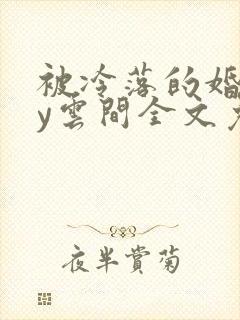 被冷落的婚
y雲間全文
夜半賞菊